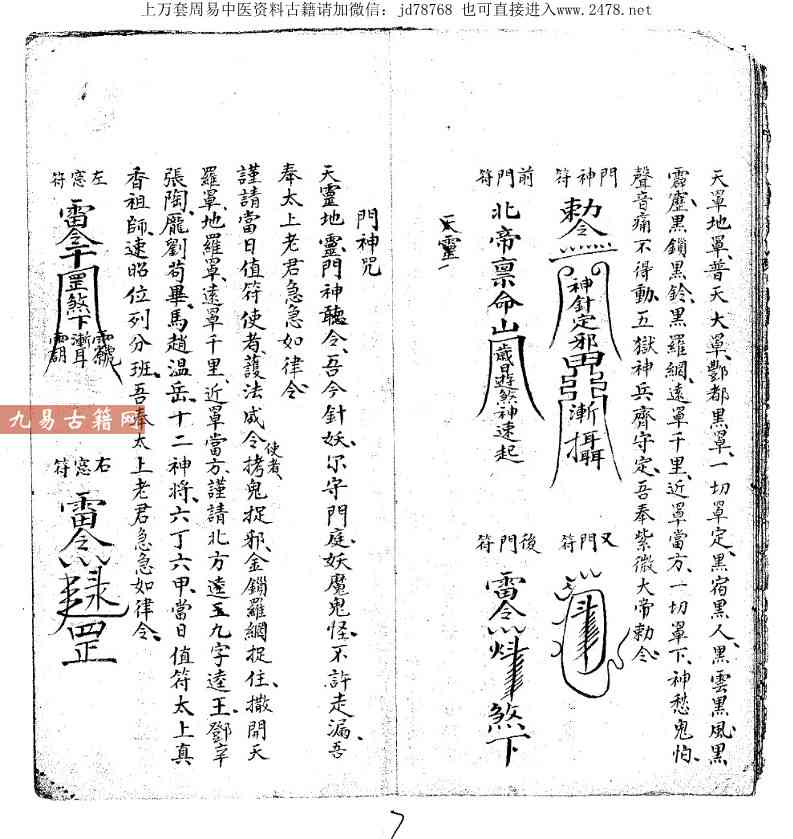 上万套周易中医资料古籍请加微信：jd78768 也可直接进入www.2478.net
天罩地罩、普天大罩、酆都黑罩、一切罩定、黑宿黑人、黑雲黑風、黑
霹靂、黑鎖黑鈴、黑羅網、遠罩千里、近罩當方、一切罩下、神愁鬼怕、
聲音痛不得動、五獄神兵齊守定、吾奉紫微大帝勅令、
門神符
勅令
神針定邪
漸攝
又門符
前門符
北帝禀命山
歲日遊煞神速起
後門符
雷令
煞下
天靈
門神咒
天靈地靈、門神聽令、吾今針妖、尔守門庭、妖魔鬼怪、不許走漏、吾
奉太上老君急急如律令、
謹請當日值符使者、護法威令拷鬼捉邪、金鎖羅網捉住、撒開天
使者、
羅罩、地羅罩、遠罩千里、近罩當方、謹請北方逵五九字逵王、鄧辛
張陶、龐劉苟畢、馬趙温岳、十二神将、六丁六甲、當日值符太上真
香祖師、速昭位列分班、吾奉太上老君急急如律令、
左窓符
雷令
罡煞下
漸耳
右窓符
雷令
罡
九易古籍网
7